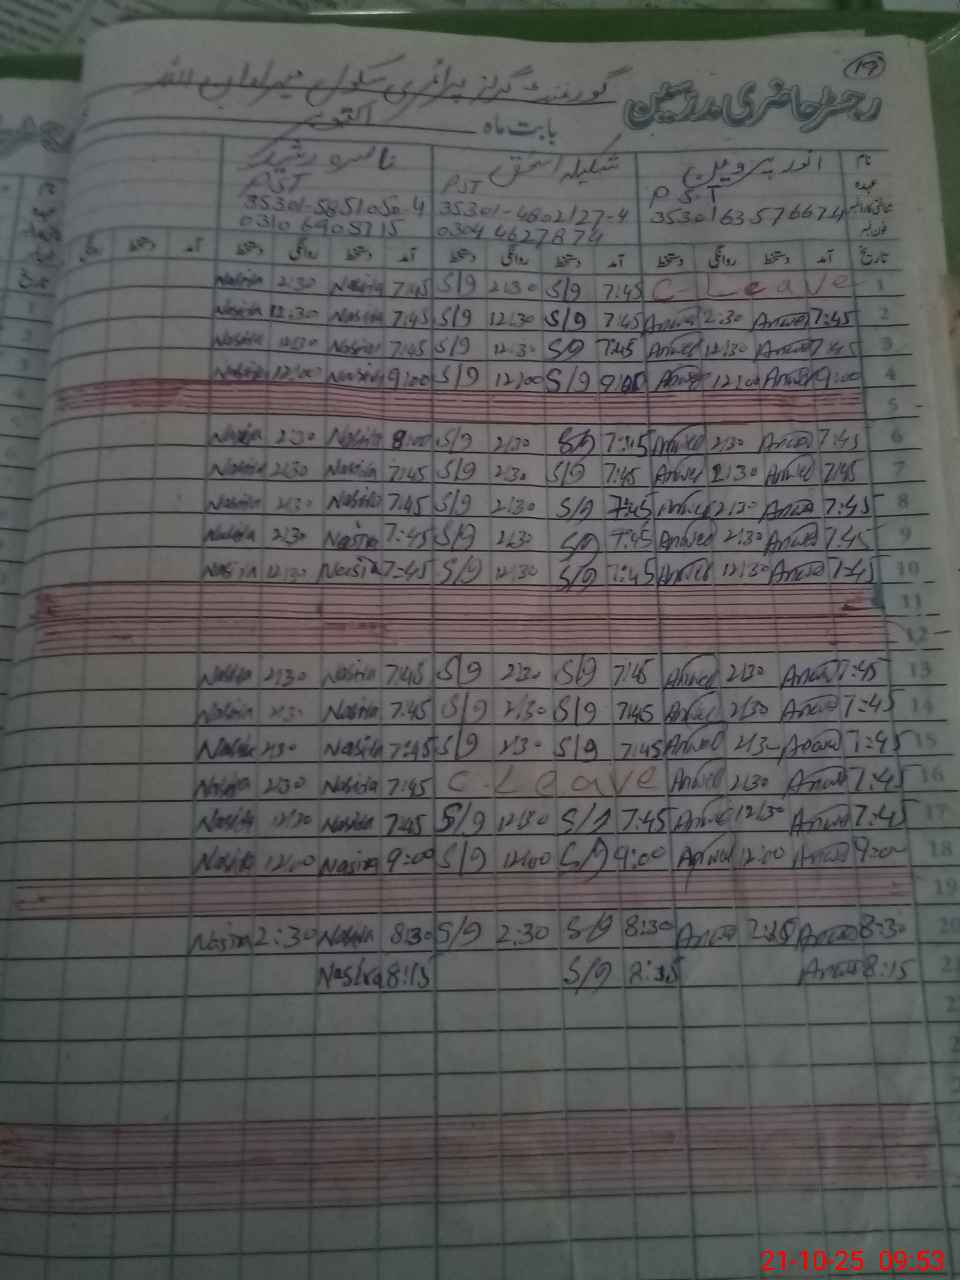 19
رجسٹر حاضری مدرسین گورنمنٹ گرلز پرائمری سکول
بابت ماہ اکتوبر
نام انور پروین شکیلہ اسحق ناصرہ رشید
عہدہ PST PST PST
3530163576674 35301-4802127-4 35301-5851050-4
فون نمبر 0304 4627874 0310 6905715
تاریخ آمد دستخط روانگی دستخط آمد دستخط روانگی دستخط آمد دستخط روانگی دستخط آمد دستخط
1 C-Leave 7:45 S/9 2:30 S/9 7:45 Nasira 2:30 Nasira
2 7:45 Anwer 2:30 Anwer 7:45 S/9 12:30 S/9 7:45 Nasira 12:30 Nasira
3 7:45 Anwer 12:30 Anwer 7:45 S/9 12:30 S/9 7:45 Nasira 12:30 Nasira
4 9:00 Anwer 12:00 Anwer 9:00 S/9 12:00 S/9 9:00 Nasira 12:00 Nasira
5
6 7:45 Anwer 2:30 Anwer 7:45 S/9 2:30 S/9 8:00 Nasira 2:30 Nasira
7 7:45 Anwer 2:30 Anwer 7:45 S/9 2:30 S/9 7:45 Nasira 2:30 Nasira
8 7:45 Anwer 2:30 Anwer 7:45 S/9 2:30 S/9 7:45 Nasira 2:30 Nasira
9 7:45 Anwer 2:30 Anwer 7:45 S/9 2:30 S/9 7:45 Nasira 2:30 Nasira
10 7:45 Anwer 12:30 Anwer 7:45 S/9 12:30 S/9 7:45 Nasira 12:30 Nasira
11
12
13 7:45 Anwer 2:30 Anwer 7:45 S/9 2:30 S/9 7:45 Nasira 2:30 Nasira
14 7:45 Anwer 2:30 Anwer 7:45 S/9 2:30 S/9 7:45 Nasira 2:30 Nasira
15 7:45 Anwer 2:30 Anwer 7:45 S/9 2:30 S/9 7:45 Nasira 2:30 Nasira
16 7:45 Anwer 2:30 Anwer C-Leave 7:45 Nasira 2:30 Nasira
17 7:45 Anwer 12:30 Anwer 7:45 S/9 12:30 S/9 7:45 Nasira 12:30 Nasira
18 9:00 Anwer 12:00 Anwer 9:00 S/9 12:00 S/9 9:00 Nasira 12:00 Nasira
19
20 8:30 Anwer Anwer 8:30 S/9 2:30 S/9 8:30 Nasira 2:30 Nasira
21 8:15 Anwer S/9 8:15 Nasira
21-10-25 09:53